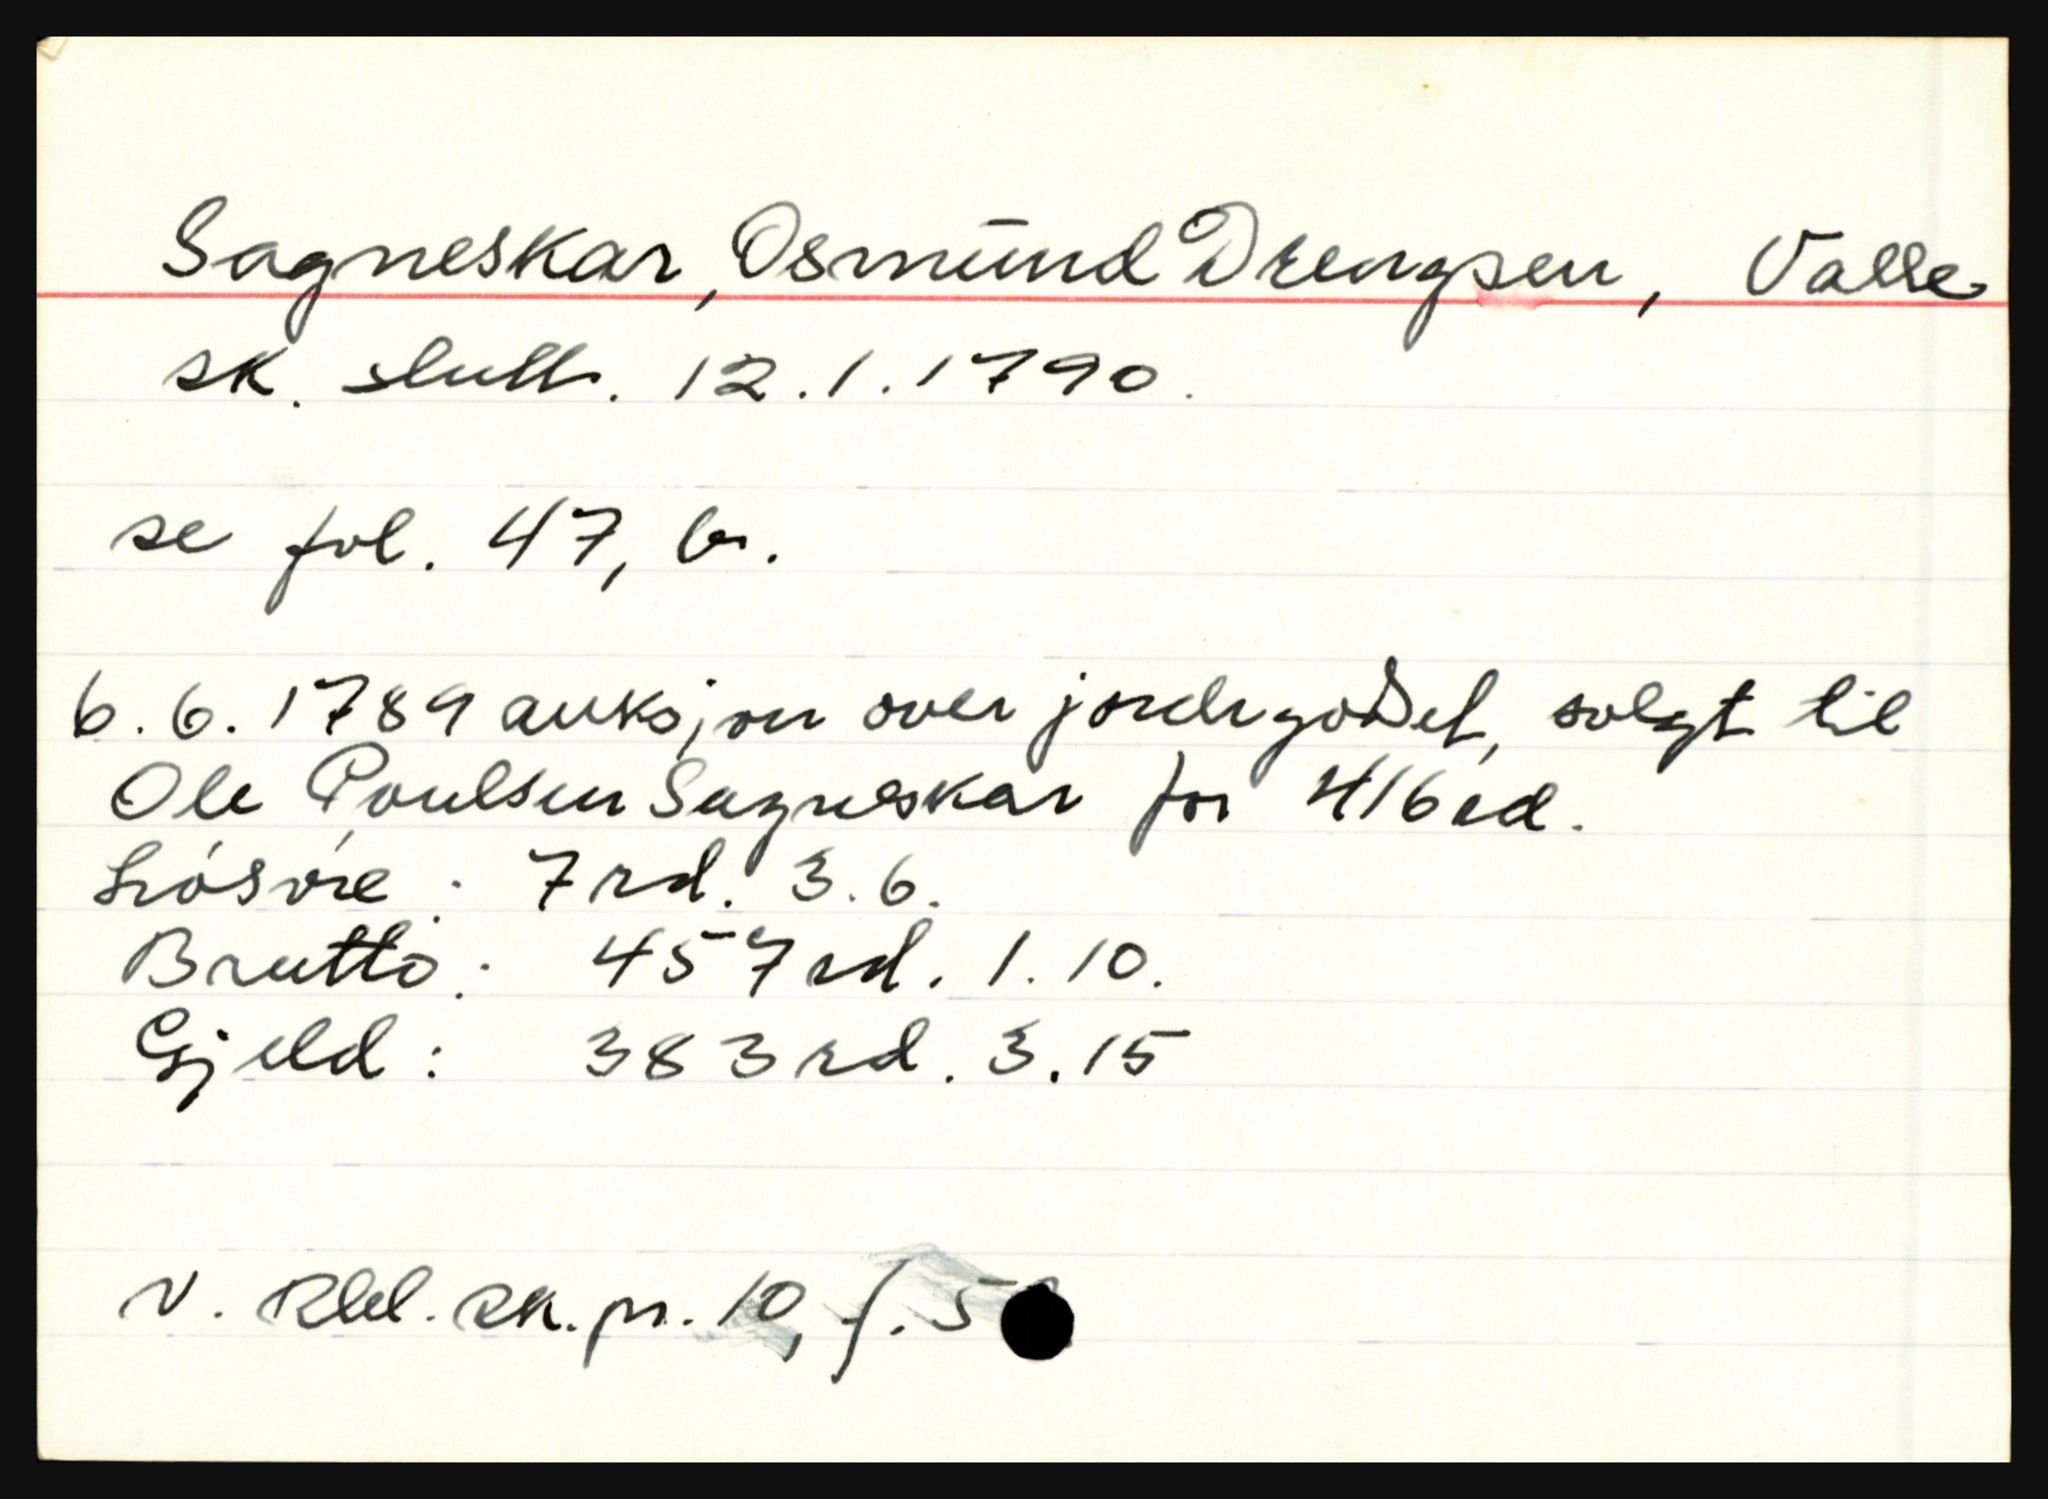 Sagneskar, Osmund Drengsen, Valle
sk. slutt. 12.1.1790.
se fol. 47, b.
6.6.1789 auksjon over jordegodset, solgt til
Ole Poulsen Sagneskar for 416 rd.
Lösöre: 7 rd. 3.6.
Brutto: 457 rd. 1.10.
Gjeld: 383 rd. 3.15
V. Rbd. sk. pr. 10, f. 5